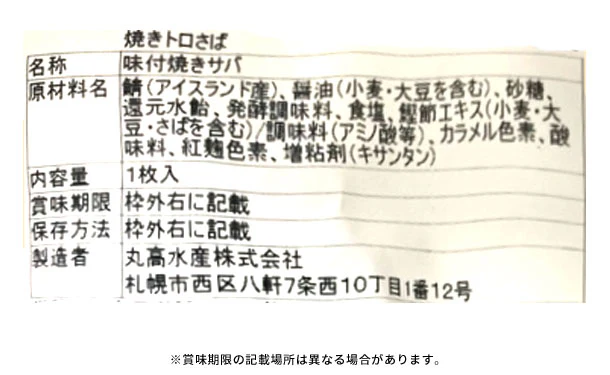 焼きトロさば
名称 味付焼きサバ
原材料名 鯖(アイスランド産)、醤油(小麦・大豆を含む)、砂糖、
還元水飴、発酵調味料、食塩、鰹節エキス(小麦・大
豆・さばを含む)/調味料(アミノ酸等)、カラメル色素、酸
味料、紅麹色素、増粘剤(キサンタン)
内容量 1枚入
賞味期限 枠外右に記載
保存方法 枠外右に記載
製造者 丸高水産株式会社
札幌市西区八軒7条西10丁目1番12号
※賞味期限の記載場所は異なる場合があります。